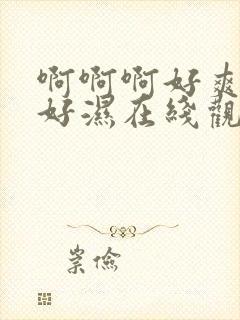 啊啊啊好爽
好濕在綫觀
崇儉